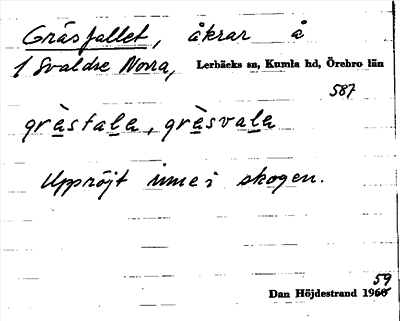 Gräsfallet, åkrar å
1 Svaldre Norra, Lerbäcks sn, Kumla hd, Örebro län
587
grèsfala, grèsvala
Uppröjt inne i skogen.
59
Dan Höjdestrand 1960